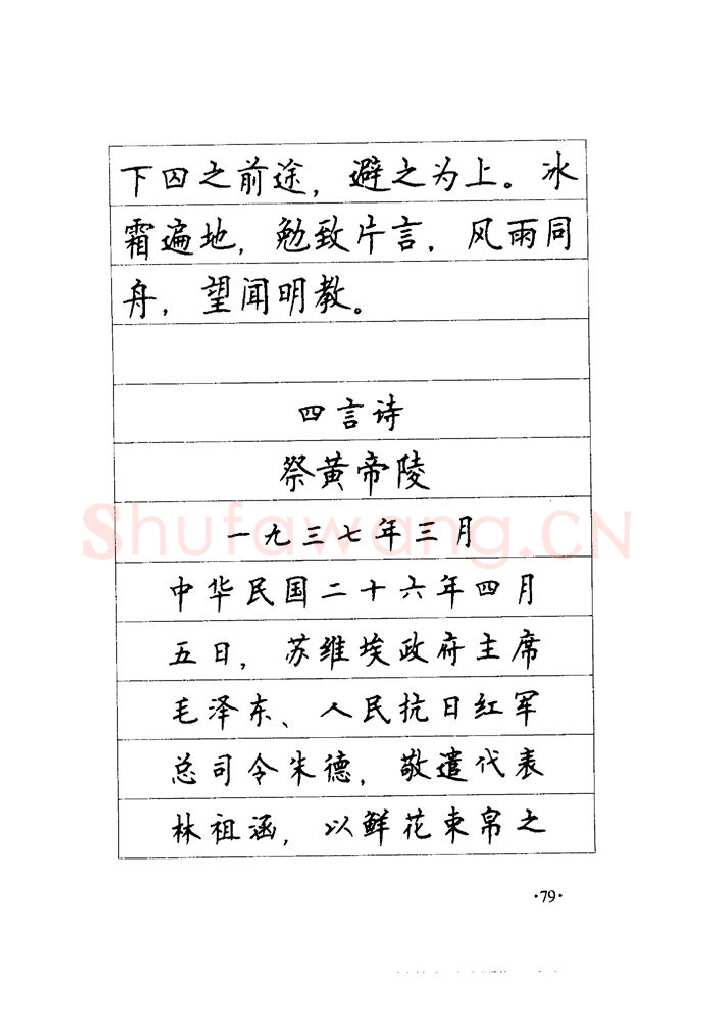 下囚之前途，避之为上。冰
霜遍地，勉致片言，风雨同
舟，望闻明教。
四言诗
祭黄帝陵
一九三七年三月
Shufawang.CN
中华民国二十六年四月
五日，苏维埃政府主席
毛泽东、人民抗日红军
总司令朱德，敬遣代表
林祖涵，以鲜花束帛之
·79·